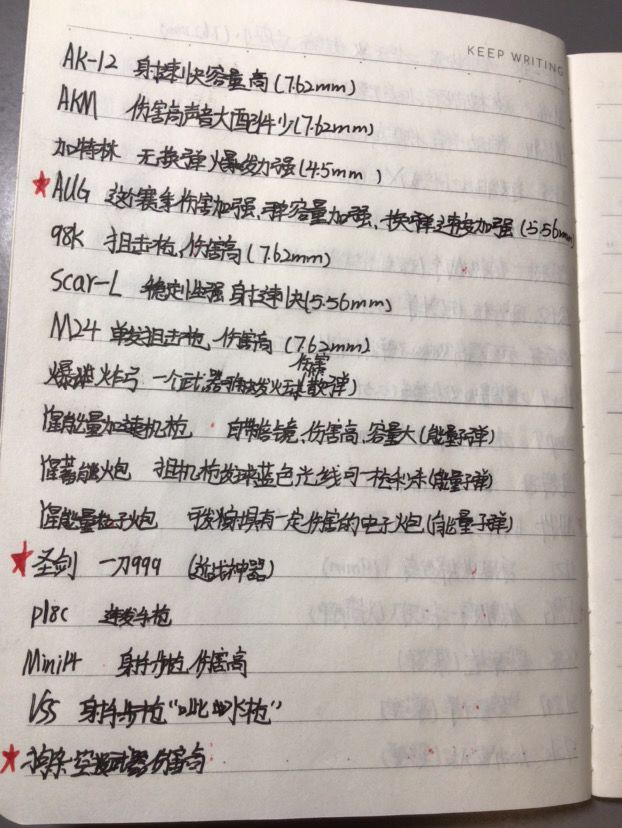 KEEP WRITING
AK-12 射速快容量高(7.62mm)
AKM 伤害高声音大配件少(7.62mm)
加特林 无换弹爆发力强(4.5mm)
★AUG 这赛季伤害加强、弹容量加强、换弹速度加强(5.56mm)
98K 狙击枪,伤害高(7.62mm)
Scar-L 稳定性强射速快(5.56mm)
M24 单发狙击枪,伤害高(7.62mm)
伤害
爆炸弓 一个武器 发火球 散弹)
能量加速机枪 自带倍镜,伤害高,容量大(能量子弹)
火炮 狙机枪发球蓝色光线可一枪秒杀(能量子弹)
能量粒子火炮 可发射具有一定伤害的电子火炮(能量子弹)
★圣剑 一刀999 (近战神器)
p18c 连发手枪
Mini14 射手步枪,伤害高
VSS 射手步枪“呲水枪”
★ 空投武器伤害高